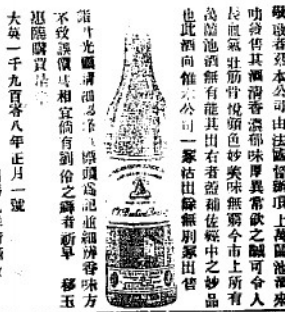 敬啟者茲本公司由法國督辦頂上萬蘭池酒來
叻發售其酒清香濃郁味厚異常飲之誠可令人
長血氣壯筋骨悅顏色妙藥味無窮今市上所有
萬蘭池酒無有能其出右者蓋補佐經中之妙品
也此酒向惟本公司一家沽出餘無別家出售
諸君光顧請細認 標頭為記並細辨香味方
不致誤價其相宜倘有到偷之辉者祈早移玉
惠臨購買是
大英一千九百零八年正月一號